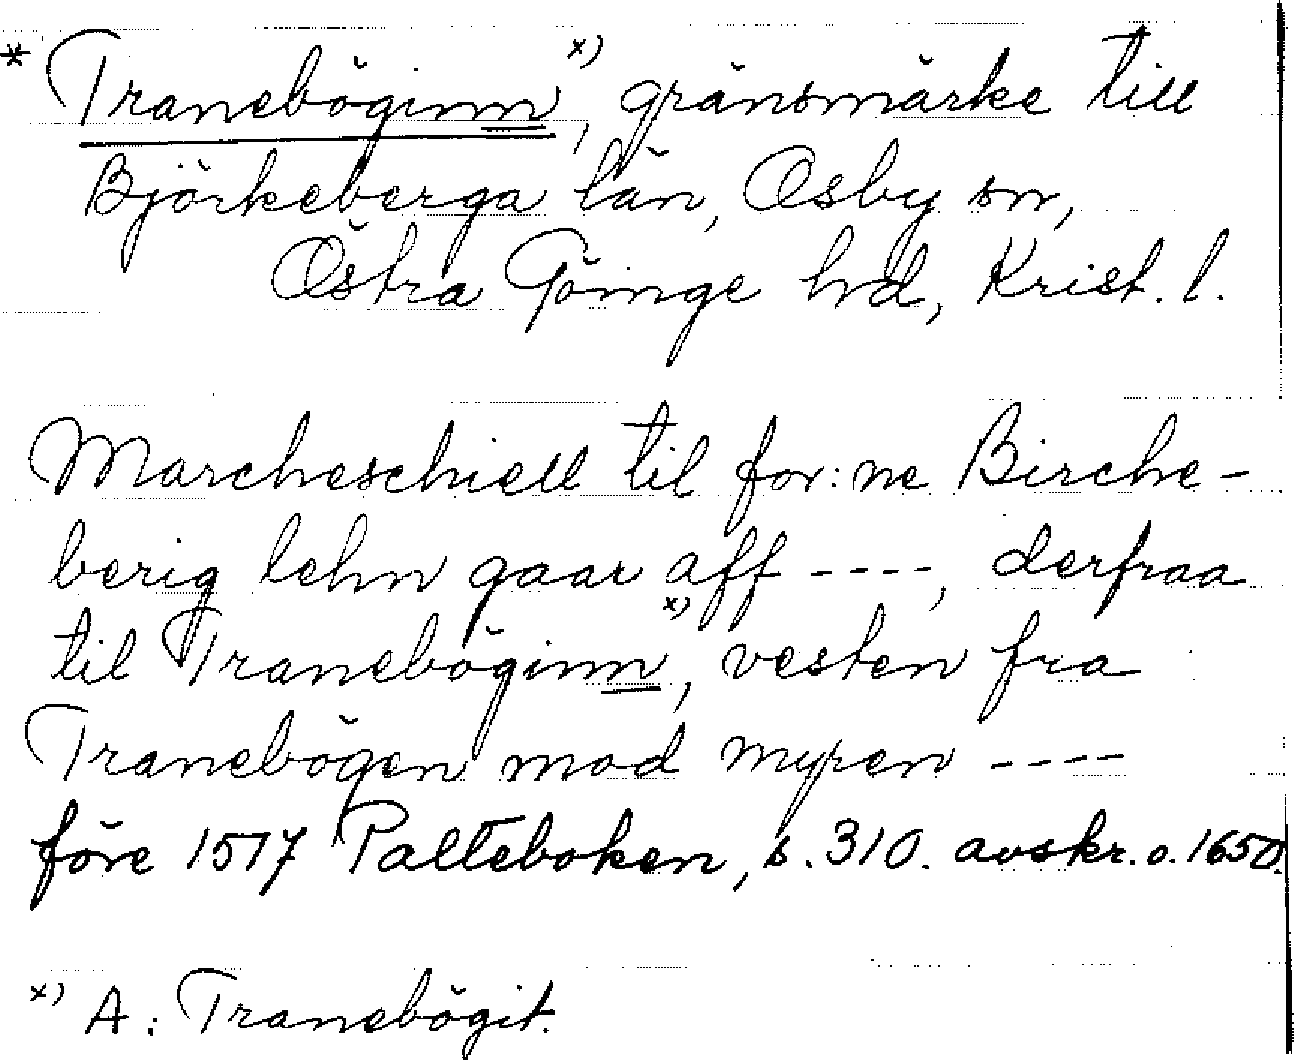 * Traneböginn x), gränsmärke till
Björkeberga län, Osby sn,
Östra Göinge hd, Krist. l.
Marcheschiell til for:ne Birche-
berig lehn gaar aff ----, derfraa
til Traneböginn x), vesten fra
Tranebögen mod myren ----
före 1517 Palteboken, s. 310. avskr. o. 1650.
x) A: Tranebögit.